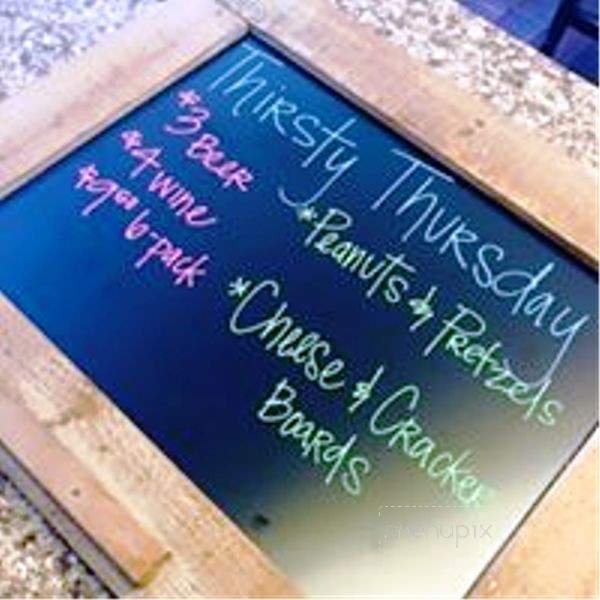 Thirsty Thursday
*3 Beer
*4 wine
*9.99 6-pack
*Peanuts & Pretzels
*Cheese & Cracker
Boards
menupix